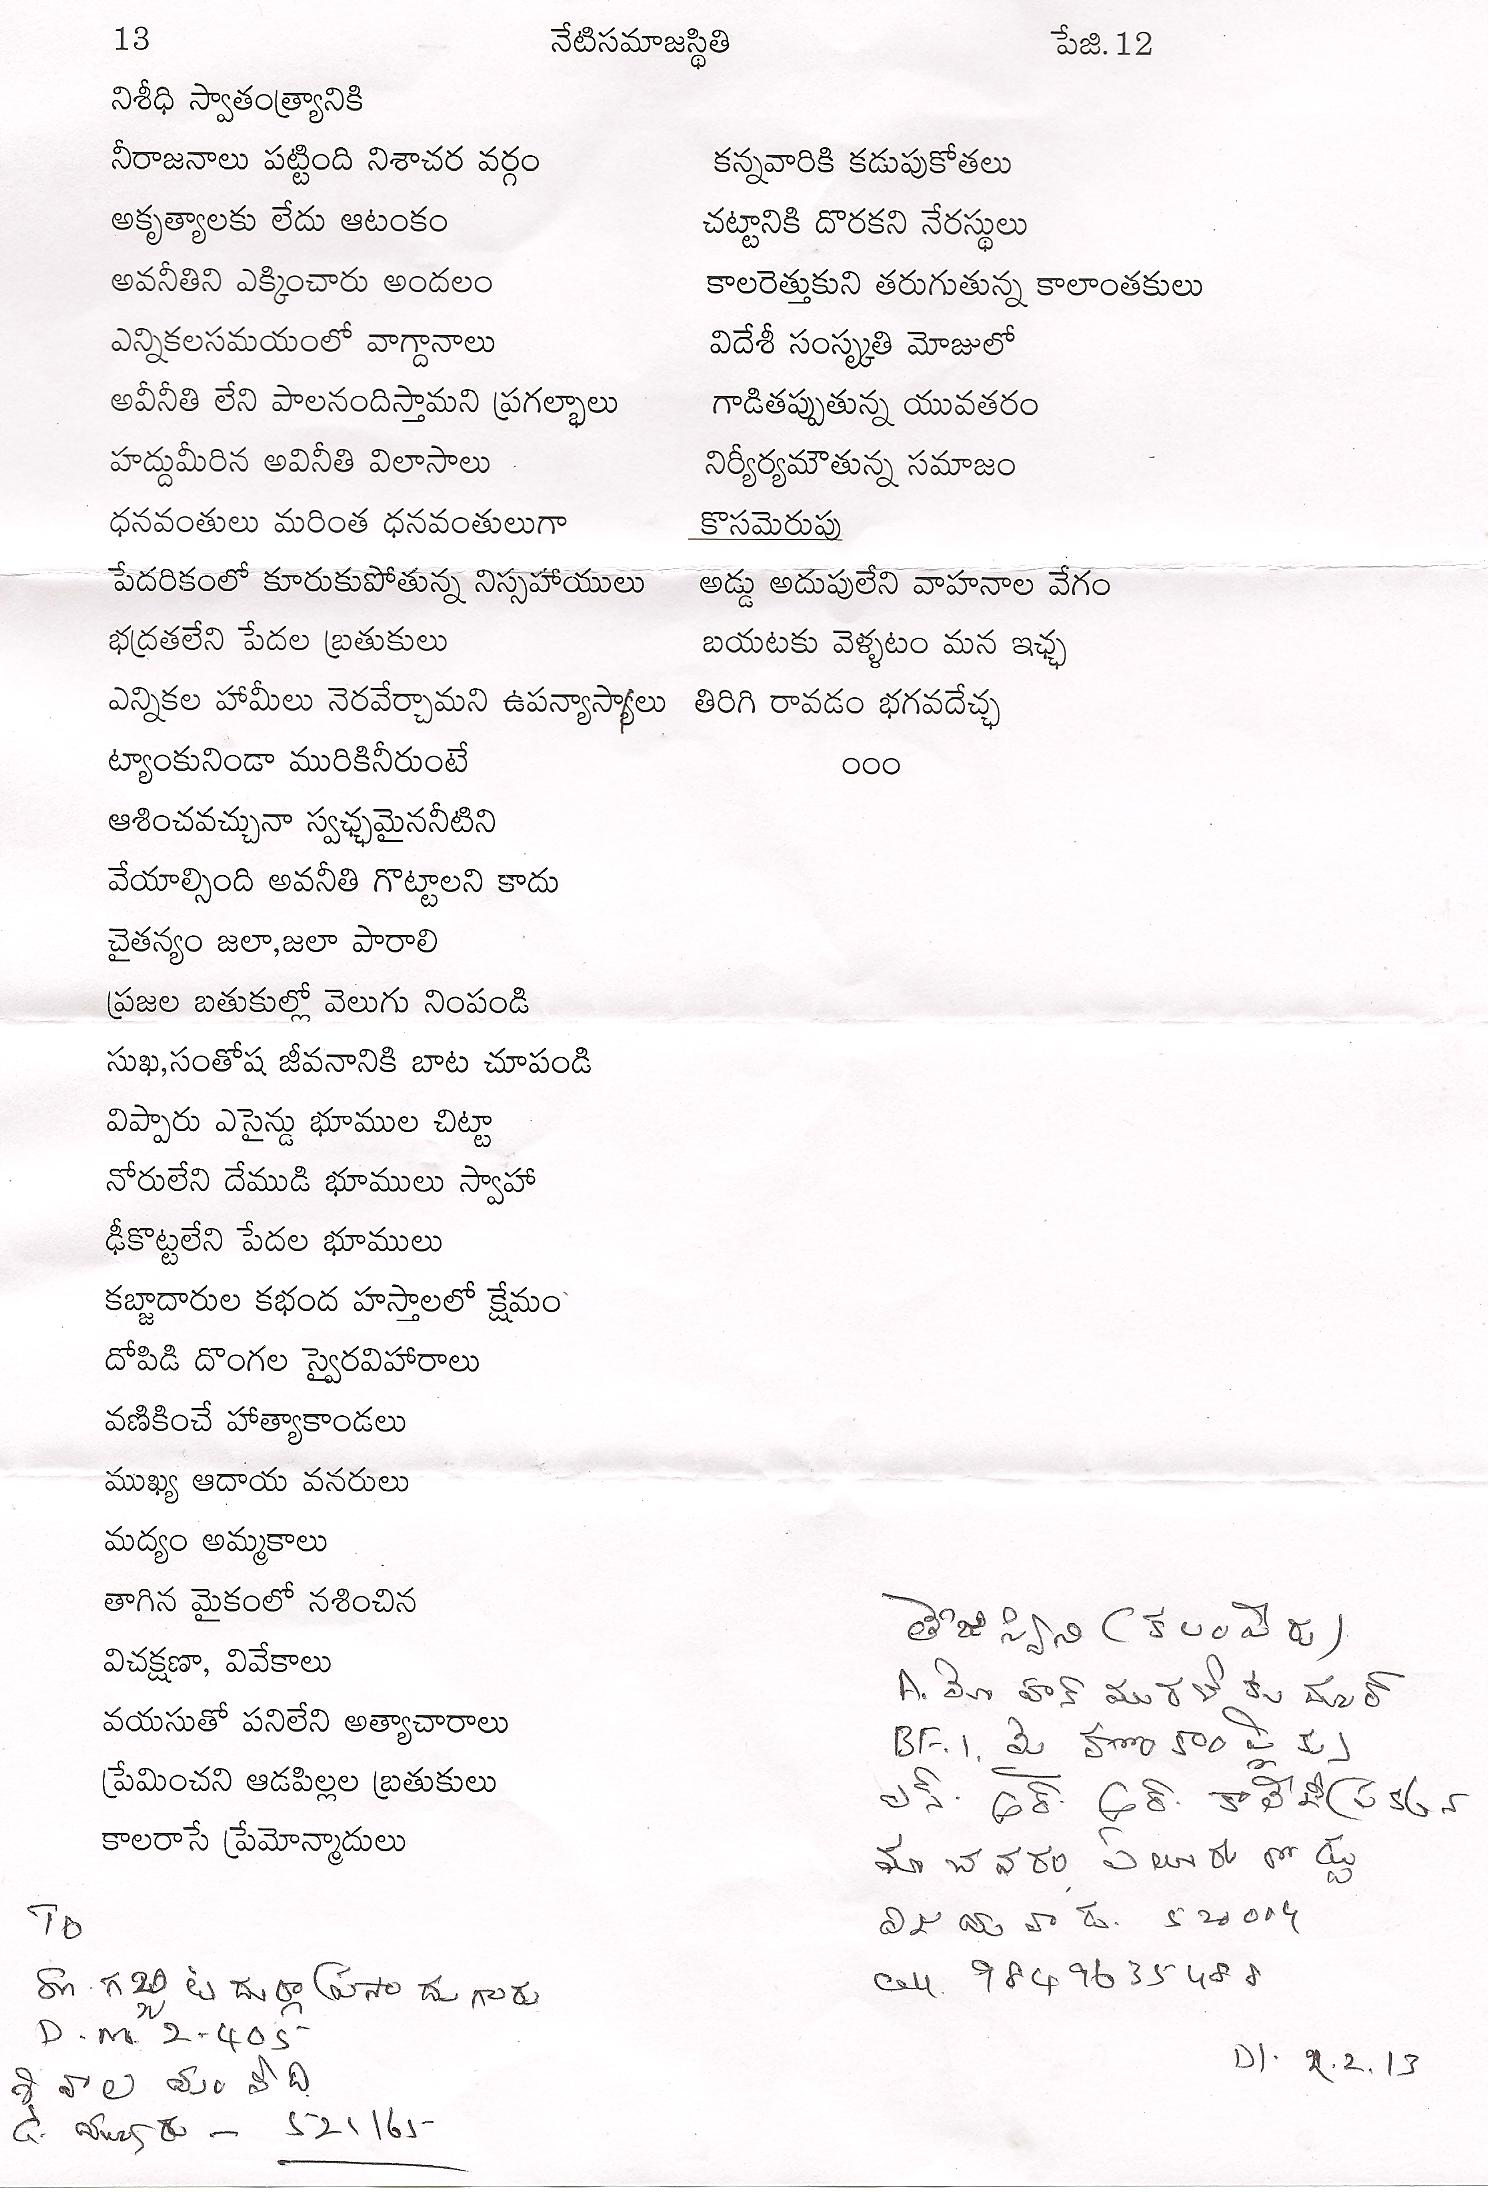 13 నేటిసమాజస్థితి పేజి.12
నిశీధి స్వాతంత్ర్యానికి
నీరాజనాలు పట్టింది నిశాచర వర్గం
అకృత్యాలకు లేదు ఆటంకం
అవనీతిని ఎక్కించారు అందలం
ఎన్నికలసమయంలో వాగ్దానాలు
అవీనీతి లేని పాలనందిస్తామని ప్రగల్భాలు
హద్దుమీరిన అవినీతి విలాసాలు
ధనవంతులు మరింత ధనవంతులుగా
పేదరికంలో కూరుకుపోతున్న నిస్సహాయులు
భద్రతలేని పేదల బ్రతుకులు
ఎన్నికల హామీలు నెరవేర్చామని ఉపన్యాస్యాలు
ట్యాంకునిండా మురికినీరుంటే
ఆశించవచ్చునా స్వఛ్ఛమైననీటిని
వేయాల్సింది అవనీతి గొట్టాలని కాదు
చైతన్యం జలా,జలా పారాలి
ప్రజల బతుకుల్లో వెలుగు నింపండి
సుఖ,సంతోష జీవనానికి బాట చూపండి
విప్పారు ఎసైన్డు భూముల చిట్టా
నోరులేని దేముడి భూములు స్వాహా
ఢీకొట్టలేని పేదల భూములు
కబ్జాదారుల కభంద హస్తాలలో క్షేమం
దోపిడి దొంగల స్వైరవిహారాలు
వణికించే హాత్యాకాండలు
ముఖ్య ఆదాయ వనరులు
మద్యం అమ్మకాలు
తాగిన మైకంలో నశించిన
విచక్షణా, వివేకాలు
వయసుతో పనిలేని అత్యాచారాలు
ప్రేమించని ఆడపిల్లల బ్రతుకులు
కాలరాసే ప్రేమోన్మాదులు
కన్నవారికి కడుపుకోతలు
చట్టానికి దొరకని నేరస్థులు
కాలరెత్తుకుని తరుగుతున్న కాలాంతకులు
విదేశీ సంస్కృతి మోజులో
గాడితప్పుతున్న యువతరం
నిర్యీర్యమౌతున్న సమాజం
కొసమెరుపు
అడ్డు అదుపులేని వాహనాల వేగం
బయటకు వెళ్ళటం మన ఇఛ్ఛ
తిరిగి రావడం భగవదేచ్ఛ
౦౦౦
తేజస్విని (కలంపేరు)
A. మోహన్ మురళీకుమార్
BF.1,
ఎస్. ఆర్. ఆర్. కాలేజీప్రక్కన
మాచవరం, ఏలూరు రోడ్డు
విజయవాడ. 520004
Cell. 9849635488
Dt. 2.2.13
To
గబ్బిట దుర్గాప్రసాదుగారు
D. m. 2-405
శివాలయం వీధి
ఉయ్యూరు - 521165